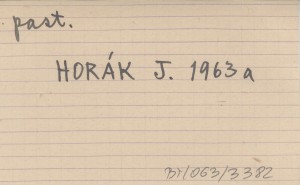 past.
HORÁK J. 1963a
BY/063/3382